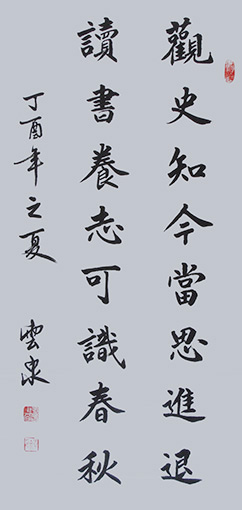 觀史知今當思進退
讀書養志可識春秋
丁酉年之夏 雲東